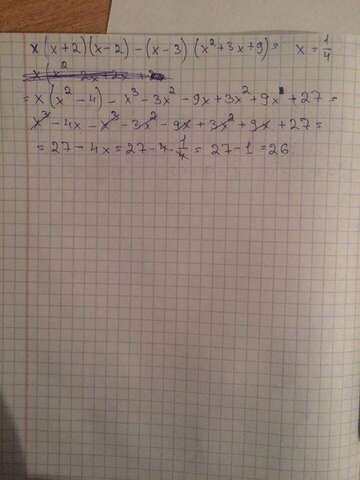 x(x+2)(x-2)-(x-3)(x²+3x+9)= x=1/4
=x(x²-4)-x³-3x²-9x+3x²+9x+27=
x³-4x-x³-3x²-9x+3x²+9x+27=
=27-4x=27-4·1/4=27-1=26